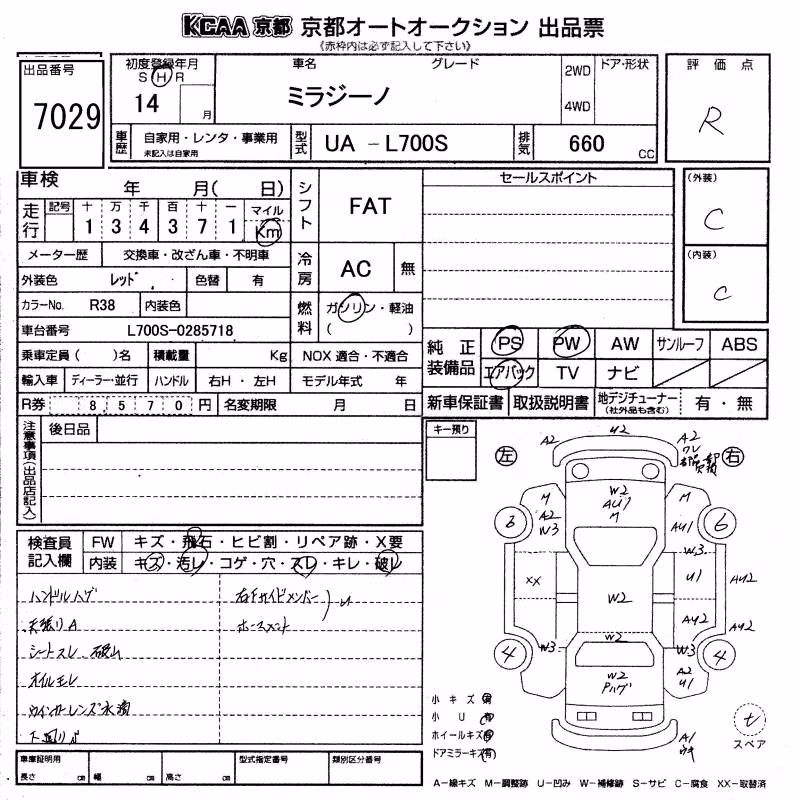 KCAA 京都 京都オートオークション 出品票
《赤枠内は必ず記入して下さい》
出品番号
7029
初度登録年月
S H R
14 月
車名 グレード
ミラジーノ
2WD
4WD
ドア・形状
評価点
R
車歴
自家用・レンタ・事業用
未記入は自家用
型式
UA - L700S
排気
660 CC
車検 年 月( 日)
走行
記号 十 万 千 百 十 一 マイル
1 3 4 3 7 1 Km
メーター歴 交換車・改ざん車・不明車
外装色 レッド 色替 有
カラーNo. R38 内装色
車台番号 L700S-0285718
乗車定員 ( )名 積載量 Kg
輸入車 ディーラー・並行 ハンドル 右H・左H
R券 8,570円 名変期限 月 日
シフト
FAT
冷房
AC 無
燃料
ガソリン・軽油
( )
NOX 適合・不適合
モデル年式 年
セールスポイント
(外装)
C
(内装)
C
純正装備品
PS PW AW サンルーフ ABS
エアバック TV ナビ
新車保証書 取扱説明書 地デジチューナー (社外品も含む) 有・無
注意事項(出品店記入)
後日品
キー預り
検査員記入欄
FW キズ・飛石・ヒビ割・リペア跡・X要
内装 キズ・汚レ・コゲ・穴・スレ・キレ・破レ
ハンドルハゲ
天張りA
シートスレ
オイルモレ
ウインカーレンズ水滴
右Fサイドメンバー
U
左 右
A2 U2 A2
ワレ
M W2 M
AU1
A2 M AU1
W3 W3
3 6
XX U1 AU2
W2
AU2 AU2
W3 W2 W3
4 4
W2 A2
Pハゲ U1
A1
小キズ 有
小U 有
ホイールキズ 有
ドアミラーキズ 有
t
スペア
車庫証明用
長さ cm 幅 cm 高さ cm
型式指定番号
類別区分番号
A-線キズ M-調整跡 U-凹み W-補修跡 S-サビ C-腐食 XX-取替済